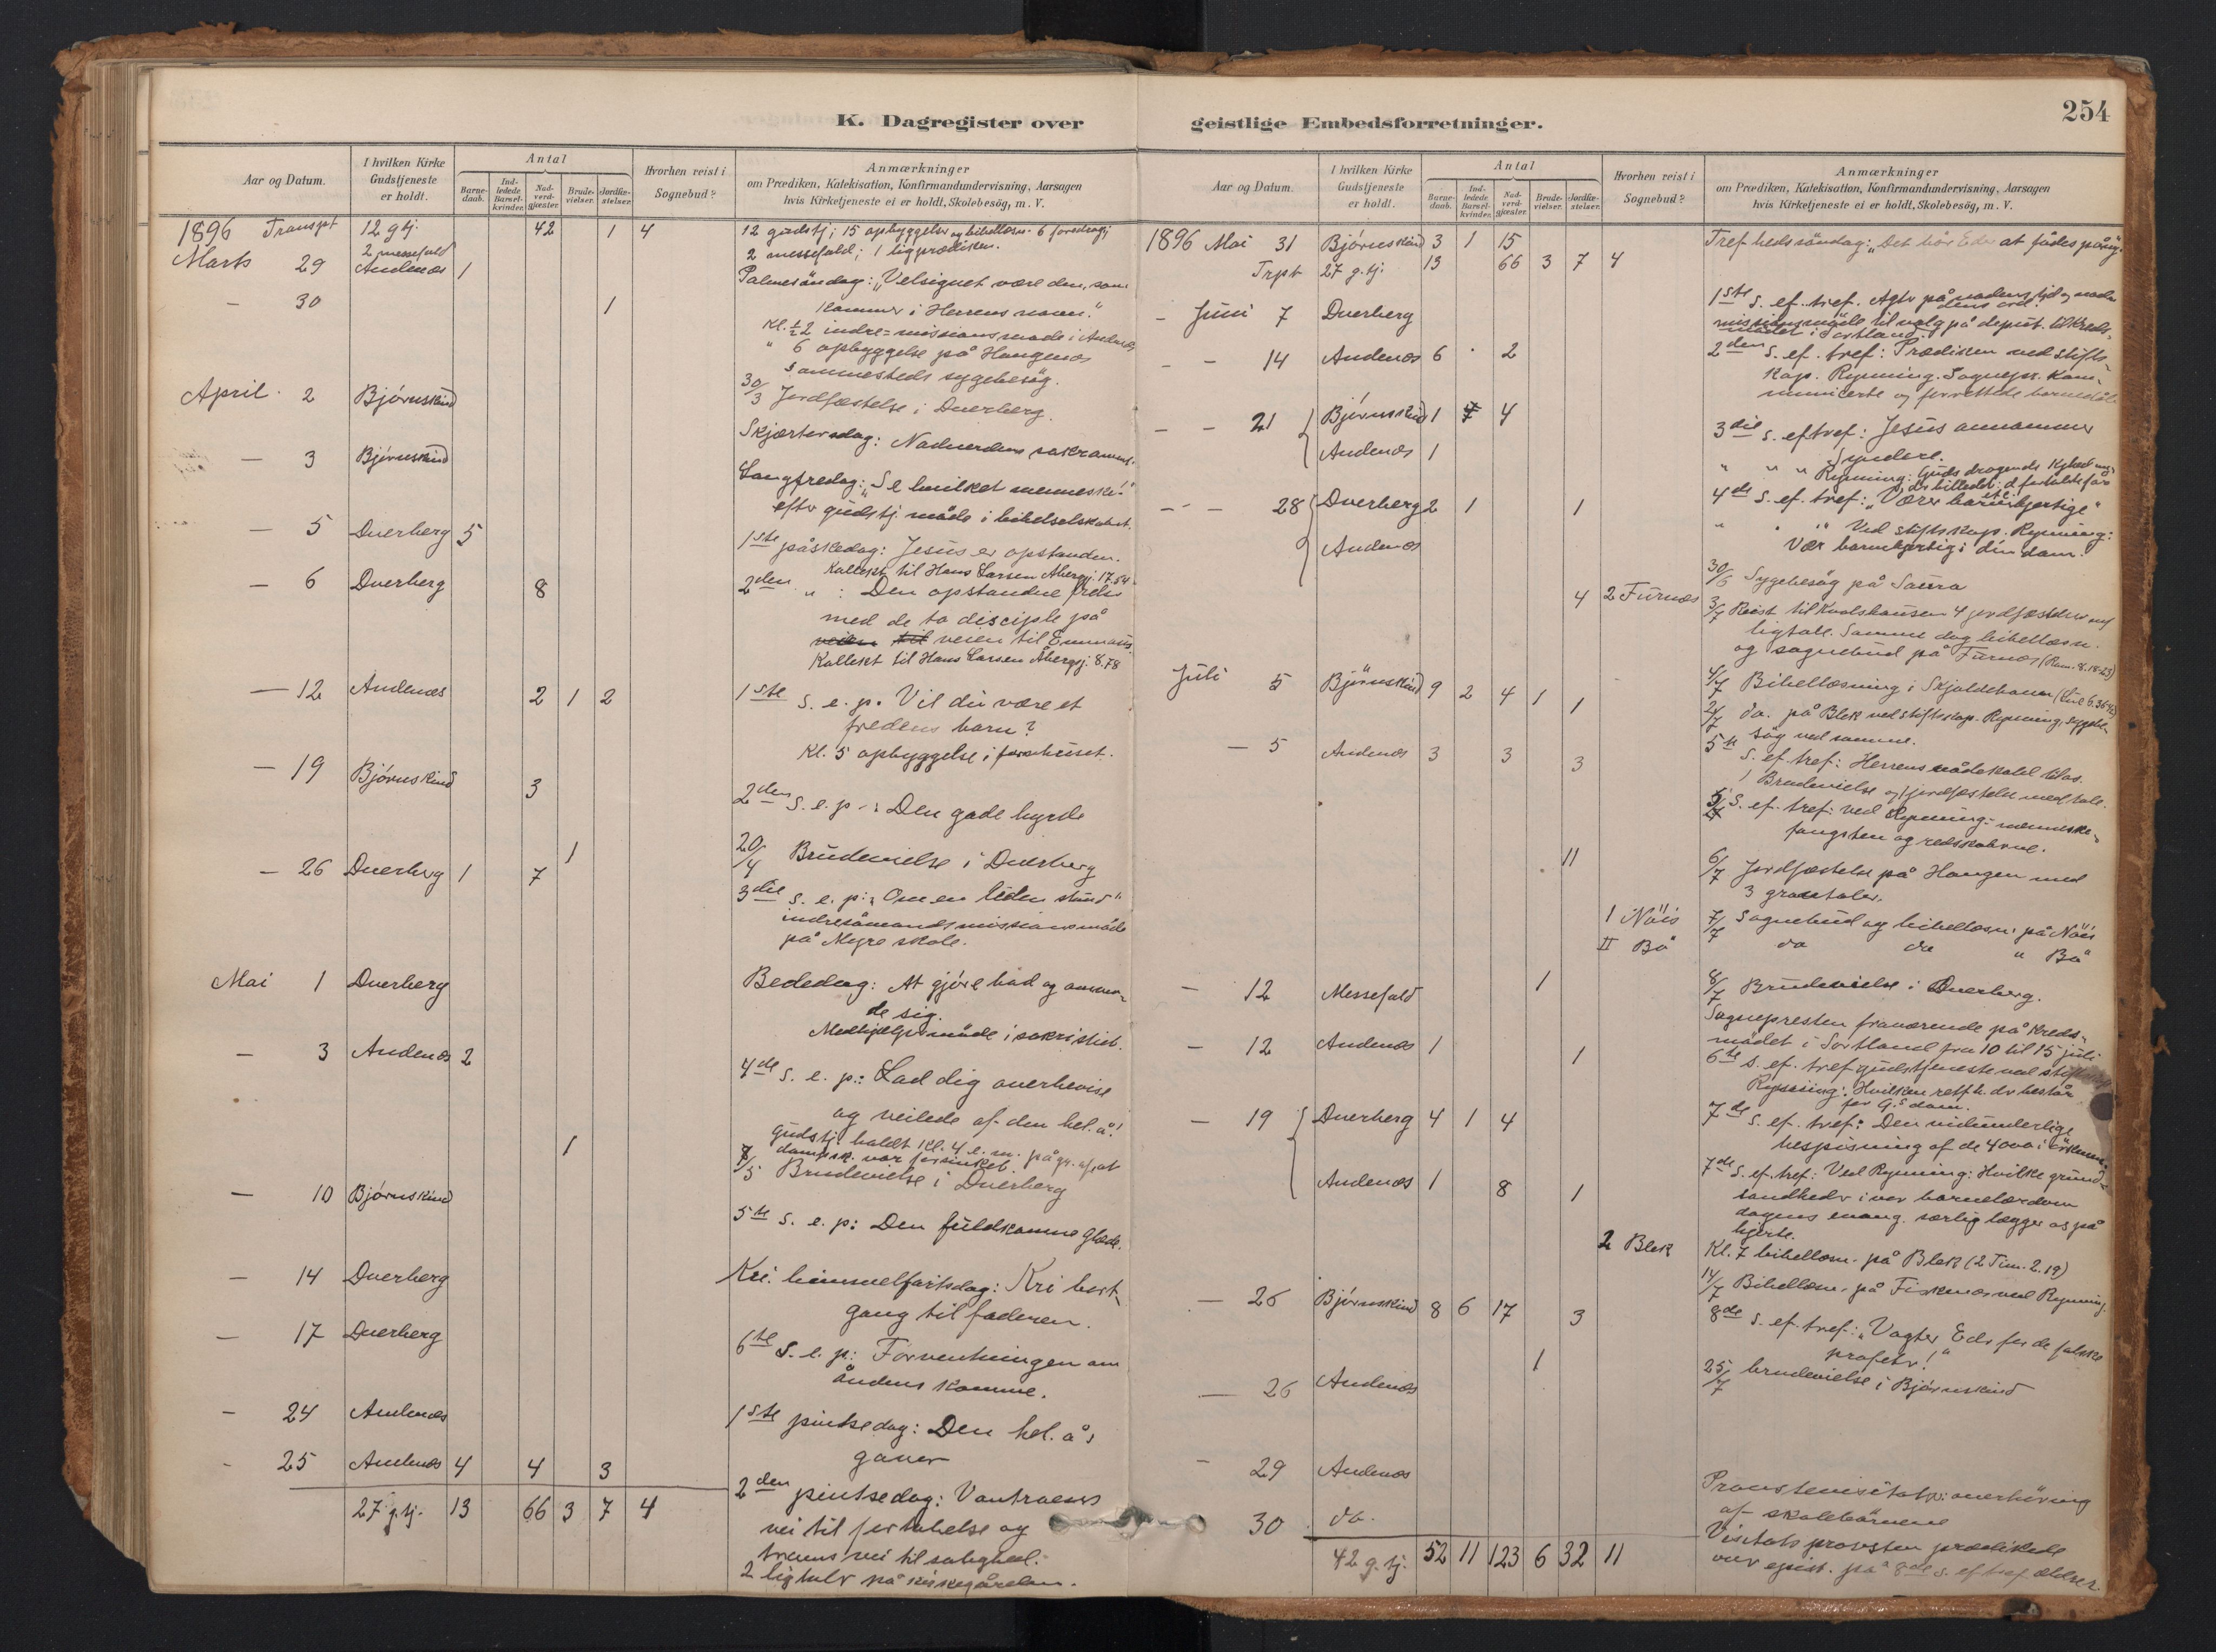 K. Dagregister over
Aar og Datum.
I hvilken Kirke Gudstjeneste er holdt.
Antal
Barne-daab.
Ind-ledede Barsel-kvinder.
Nad-verd-gjæster.
Brude-vielser.
Jordfæ-stelser.
Hvorhen reist i Sognebud?
Anmærkninger
om Prædiken, Katekisation, Konfirmandundervisning, Aarsagen
hvis Kirketjeneste ei er holdt, Skolebesög, m. V.
1896 Transpt 12 g tj. 42 1 4 12 gudstj; 15 opbyggelser og bibellæsn. 6 foredrag;
2 messefald 2 messefald; 1 ligprædiken.
Marts 29 Andenæs 1 Palmesöndag: „Velsignet være den, som
- 30 1 kommer i Herrens navn."
Kl. ½2 indre-missionsmøde i Andenæs
" 6 opbyggelse på Haugenes
sammesteds sygebesög.
30/3 Jordfæstelse i Dverberg.
April 2 Bjørnskind Skjærtorsdag: Nadverdens sakrament.
— 3 Bjørnskind Langfredag: „Se hvilket menneske!"
efter gudstj. möde i bibelselskabet.
— 5 Dverberg 5 1ste påskedag: Jesus er opstanden.
Kollekt til Hans Larsen Åbergsj. 17.54
— 6 Dverberg 8 2den " : Den opstandne frelser
med de to disciple på
veien til veien til Emmaus.
Kollekt til Hans Larsen Åbergsj. 8.78
— 12 Andenæs 2 1 2 1ste s. e. p. Vil du være et
fredens barn?
Kl. 5 opbyggelse i forsehuset.
— 19 Bjørnskind 3 2den s. e. p.: Den gode hyrde
1 20/4 Brudevielse i Dverberg
— 26 Dverberg 1 7 3die s. e. p: „Om en liden stund"
indresömandsmissionsmöde
på Myre skole.
Mai 1 Dverberg Bededag: At gjöre bod og omven-
de sig.
Medhjælpermöde i sakristiet.
— 3 Andenæs 2 4de s. e. p.: Lad dig overbevise
og veilede af den hel. å!
Gudstj. holdt Kl. 4 e. m. på gr. af, at
dampsk. var forsinket.
1 7/5 Brudevielse i Dverberg
— 10 Bjørnskind 5te s. e. p: Den fuldkomne glæde.
— 14 Dverberg Kri. himmelfartsdag: Kri bort-
gang til faderen.
— 17 Dverberg 6te s. e. p: Forventningen om
åndens komme.
- 24 Andenæs 1ste pintsedag: Den hel. å's
gaver
- 25 Andenæs 4 4 3 2den pintsedag: Vantroens
27 g.tj. 13 66 3 7 4 vei til fortabelse og
troens vei til salighed.
2 ligtaler på kirkegården.
254
geistlige Embedsforretninger.
Aar og Datum.
I hvilken Kirke Gudstjeneste er holdt.
Antal
Barne-daab.
Ind-ledede Barsel-kvinder.
Nad-verd-gjæster.
Brude-vielser.
Jordfæ-stelser.
Hvorhen reist i Sognebud?
Anmærkninger
om Prædiken, Katekisation, Konfirmandundervisning, Aarsagen
hvis Kirketjeneste ei er holdt, Skolebesög, m. V.
1896 Mai 31 Bjørnskind 3 1 15 Trefhedssöndag: „Det bör Eder at fødes påny".
Trpt 27 g. tj. 13 66 3 7 4
- Juni 7 Dverberg 1ste s. ef. tref. Agt på nadens tid og nadens
missionsmöde til valg på deput. til kreds-
mödet i Sortland.
- - 14 Andenæs 6 2 2den s. ef. tref: Prædiken ved stifts-
kap. Rynning. Sognepr. kom-
municerte og forrettede barnedåb
- - 21 Bjørnskind 1 4 3die s. ef tref: Jesus annammer
Andenæs 1 Syndere.
" " " Rynning: Guds dragende kjærl.
- - 28 Dverberg 2 1 1 4de s. ef. tref: „Værer barmhjertige"
Andenæs " " " Ved stiftskap. Rynning:
Vær barmhjertig i din dom.
30/6 Sygebesög på Saura
4 2 Furnæs 3/7 Reist til Kvalshausen 4 jordfæstelser m/
ligtale. Samme dag bibellæsn.
og sognebud på Furnæs (Rom. 8.18-23)
4/7 Bibellæsning i Skjoldehavn (Luc 6.36-42)
Juli 5 Björnskind 9 2 4 1 1 do. på Blek ved stiftskap. Rynning, sygebe-
sög ved samme.
— 5 Andenæs 3 3 3 5te s. ef. tref: Herrens nådekald til os.
1 Brudevielse og 1 jordfæstelse med tale.
s. ef. tref: ved Rynning: menneske-
fangsten og redskaberne.
11 6/7 Jordfæstelse på Haugen med
3 gravtaler.
1 Nöis 7/7 Sognebud og bibellæsn. på Nöis
II Bö do do " Bö
— 12 Messefald 1 8/7 Brudevielse i Dverberg.
Sognepresten fraværende på kreds-
mödet i Sortland fra 10 til 15 juli
— 12 Andenæs 1 1 6te s. ef. tref gudstjeneste ved stiftskap
Rynning: Hvilken retfh. der består
for G.s dom.
— 19 Dverberg 4 1 4 7de s. ef. tref: Den vidunderlige
bespisning af de 4000 i örkenen.
Andenæs 1 8 1 7de s. ef. tref: Ved Rynning: Hvilke grund-
sandheder i vor barnelærdom
dagens evang. særlig lægger os på
hjerte.
2 Blek Kl. 7 bibellæsn. på Blek (2 Tim. 2.19)
14/7 Bibellæsn. på Fiskenes ved Rynning.
— 26 Bjørnskind 8 6 17 3 8de s. ef. tref: „Vogter Eder for de falske
profeter!"
1 25/7 brudevielse i Bjørnskind
— 26 Andenæs
- 29 Andenæs Provstevisitats: overhöring
af skolebörnene
30 do. Visitats provsten prædikede
42 g. tj. 52 11 123 6 32 11 over epist. på 8de s. ef tref